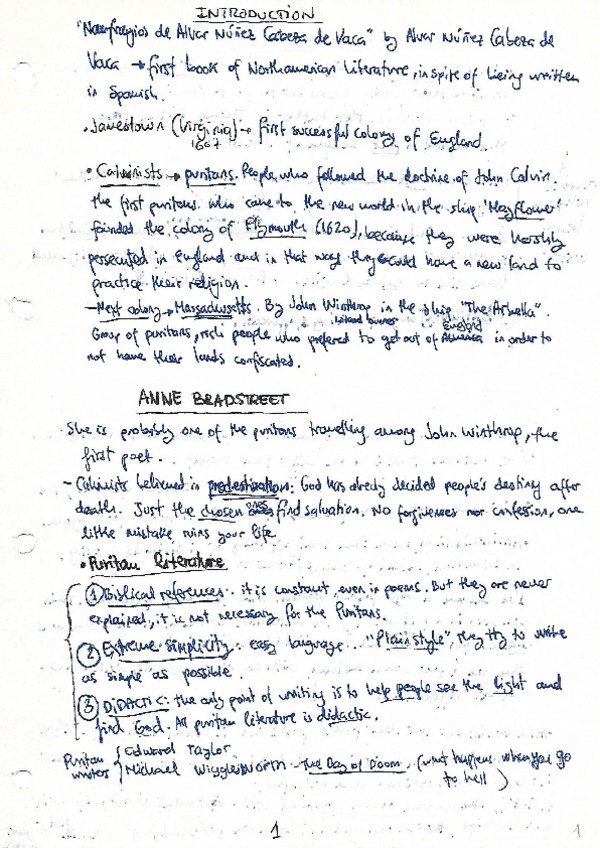 INTRODUCTION
"Naufragios de Alvar Núñez Cabeza de Vaca" by Alvar Núñez Cabeza de
Vaca → first book of Northamerican literature, in spite of being written
in Spanish.
• Jamestown (Virginia) → first successful colony of England
1607
• Calvinists → puritans. People who followed the doctrine of John Calvin.
the first puritans who came to the new world in the ship "Mayflower"
founded the colony of Plymouth (1620), because they were harshly
persecuted in England and in that way they could have a new land to
practice their religion.
- Next colony → Massachusetts. By John Winthrop in the ship "The Arbella".
land owners England
Group of puritans, rich people who preferred to get out of America in order to
not have their lands confiscated.
ANNE BRADSTREET
She is probably one of the puritans travelling among John Winthrop, the
first poet.
- Calvinists believed in predestination: God has already decided people's destiny after
death. Just the chosen find salvation. No forgiveness nor confession, one
little mistake ruins your life.
• Puritan literature
① Biblical references: it is constant, even in poems. But they are never
explained, it is not necessary for the Puritans.
② Extreme simplicity: easy language. "Plain style", they try to write
as simple as possible.
③ DIDACTIC: the only point of writing is to help people see the light and
find God. All puritan literature is didactic.
Puritan writers { Edward Taylor
Michael Wigglesworth - The Day of Doom (what happens when you go
to hell)
1
1